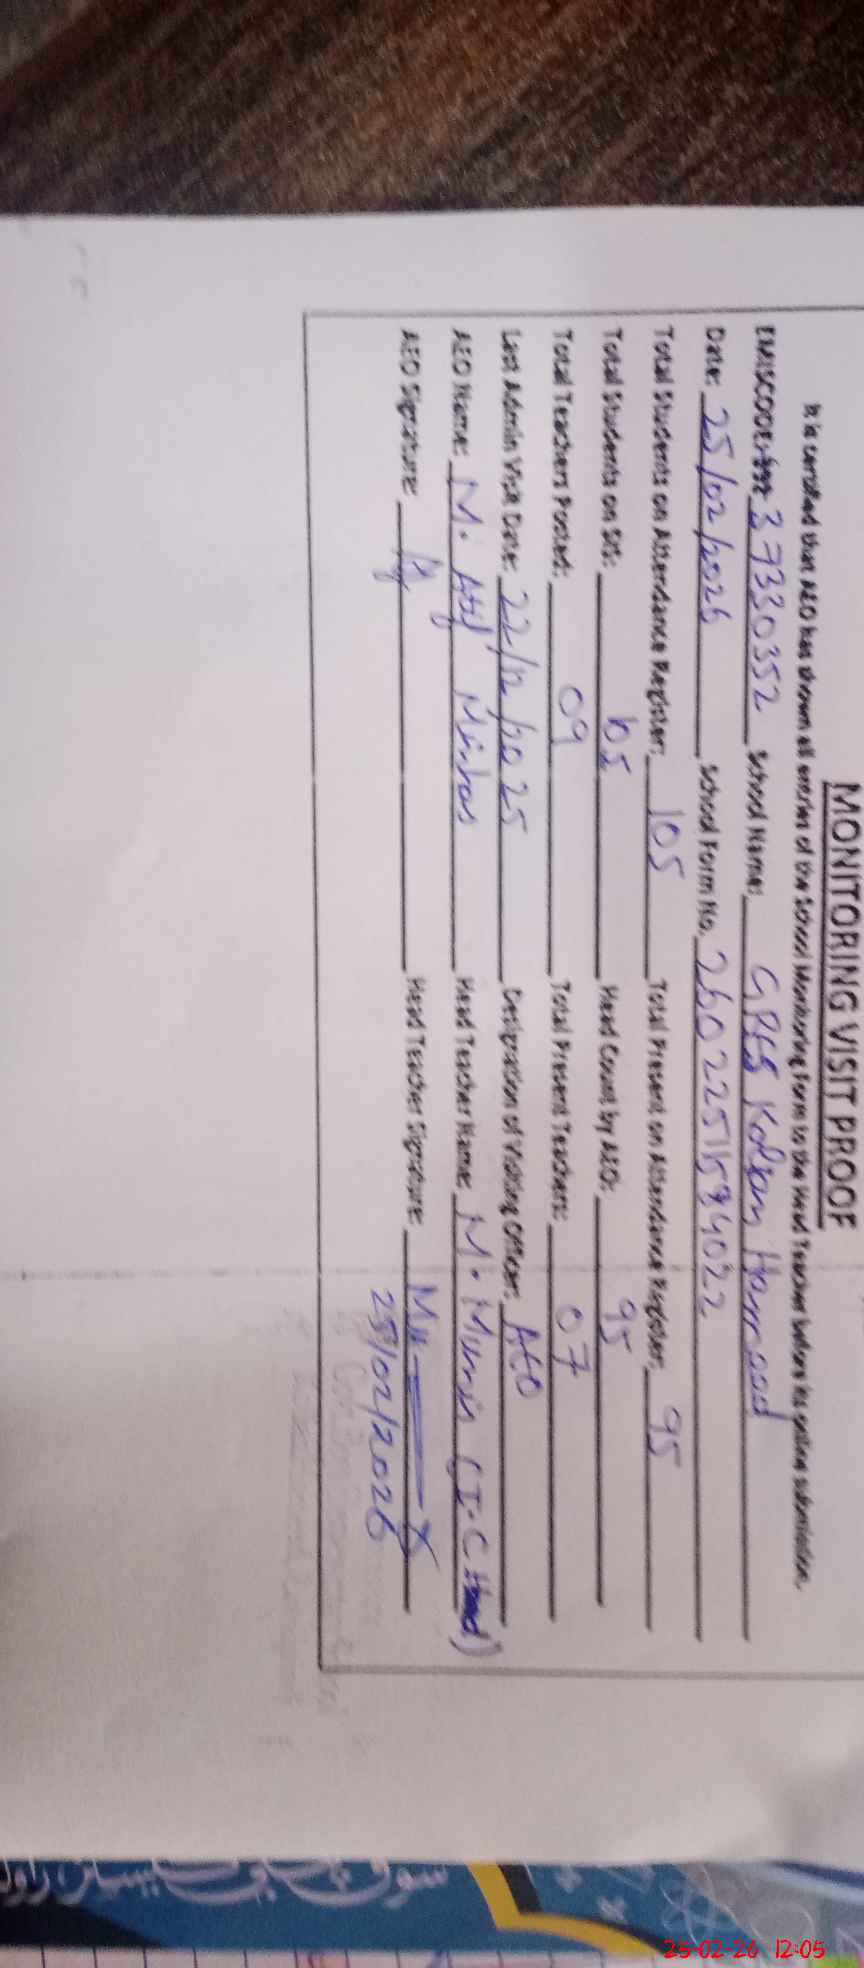 MONITORING VISIT PROOF
It is certified that AEO has shown all entries of the School Monitoring Form to the Head Teacher before its online submission.
EMISCODE: 37330352 School Name: GPES Hamood
Date: 25/02/2026 School Form No. 26022511584022
Total Students on Attendance Register: 105 Total Present on Attendance Register: 95
Total Students on SIS: 105 Head Count by AEO: 95
Total Teachers Posted: 09 Total Present Teachers: 07
Last Admin Visit Date: 22/12/2025 Designation of Visiting Officer: AEO
AEO Name: M. Head Teacher Name: M. Munir (I.C Head)
AEO Signature: Head Teacher Signature:
25/02/2026
25-02-26 12:05